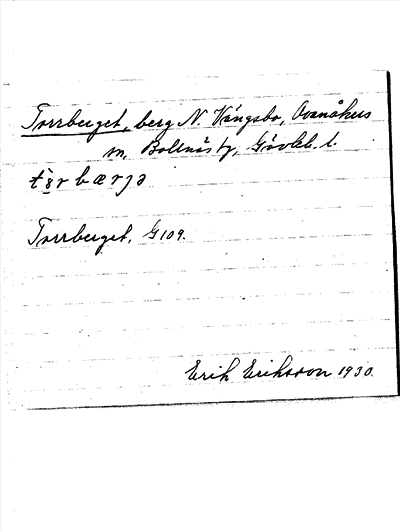 Torrberget, berg N. Vängsbo, Ovanåkers
sn, Bollnäs tg, Gävleb. l.
Torrberget, G 109.
Erik Eriksson 1930.